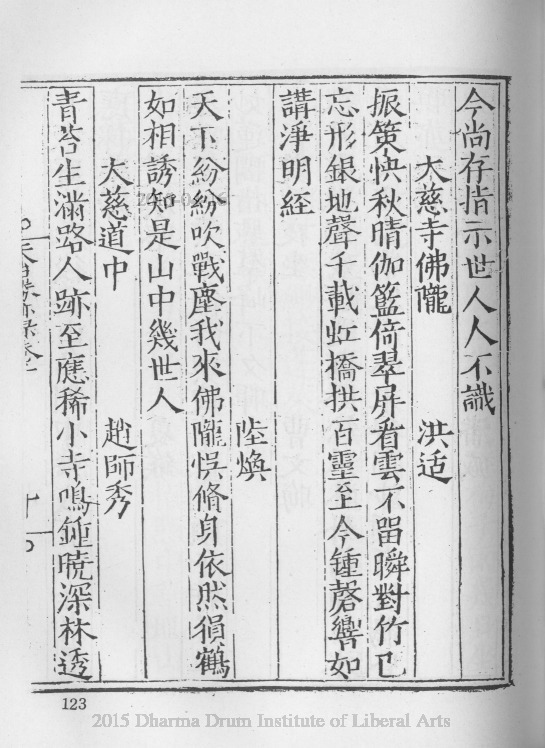 今尚存指示世人人不識
大慈寺佛隴 洪适
振策快秋晴伽籃倚翠屏看雲不畱瞬對竹已
忘形銀地聲千載虹橋拱百靈至今鍾磬響如
講淨明經
陸煥
天紛紛吹戰塵我來佛隴悞脩身依然猿鶴
如相誘知是山中幾世人
大慈道中 趙師秀
青苔生滿路人跡至應稀小寺鳴鍾曉深林透
十
123
2015 Dharma Drum Institute of Liberal Arts